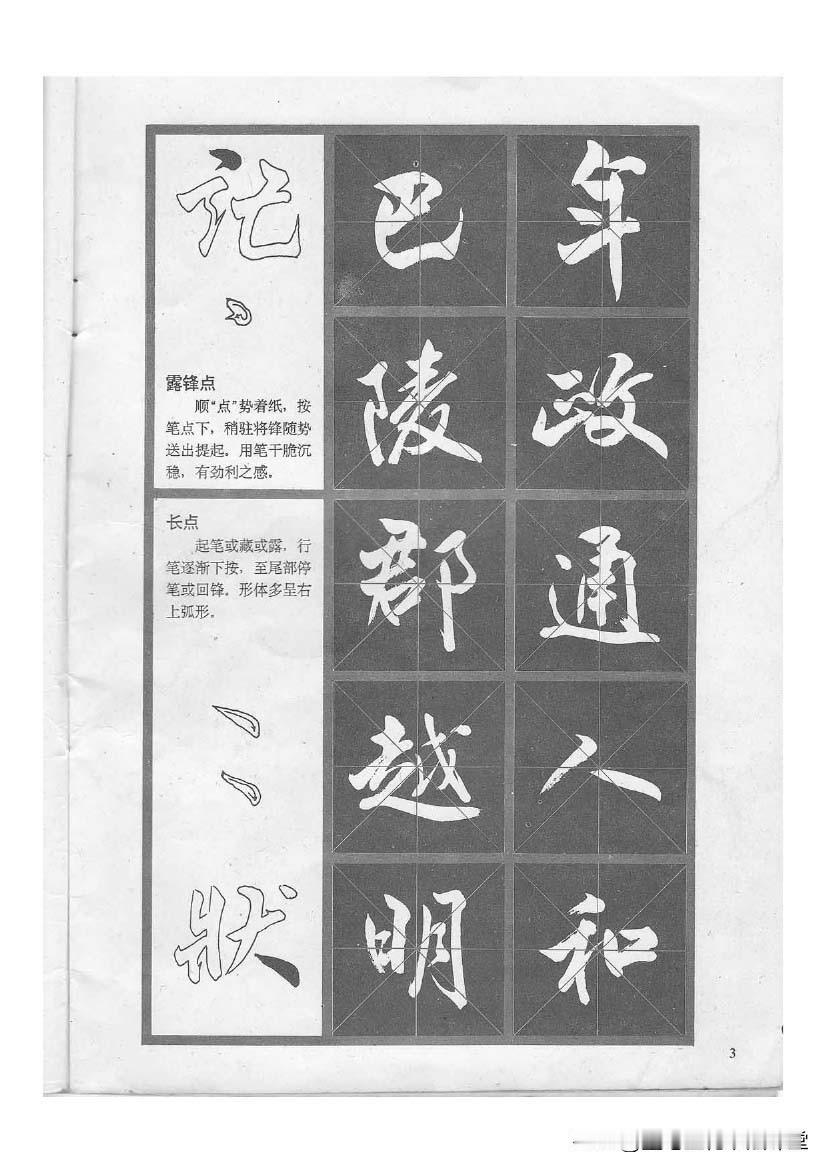 记
露锋点
顺“点”势着纸，按
笔点下，稍驻将锋随势
送出提起。用笔干脆沉
稳，有劲利之感。
长点
起笔或藏或露，行
笔逐渐下按，至尾部停
笔或回锋。形体多呈右
上弧形。
狀
巴陵郡越明
年政通人和
3